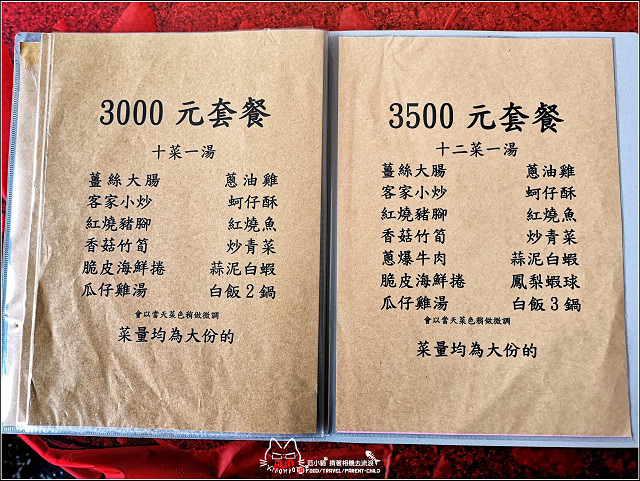 3000 元套餐
十菜一湯
薑絲大腸 蔥油雞
客家小炒 蚵仔酥
紅燒豬腳 紅燒魚
香菇竹筍 炒青菜
脆皮海鮮捲 蒜泥白蝦
瓜仔雞湯 白飯2鍋
會以當天菜色稍做微調
菜量均為大份的
3500 元套餐
十二菜一湯
薑絲大腸 蔥油雞
客家小炒 蚵仔酥
紅燒豬腳 紅燒魚
香菇竹筍 炒青菜
蔥爆牛肉 蒜泥白蝦
脆皮海鮮捲 鳳梨蝦球
瓜仔雞湯 白飯3鍋
會以當天菜色稍做微調
菜量均為大份的
滔小貓 揹著相機去流浪
FOOD/TRAVEL/PARENT-CHILD